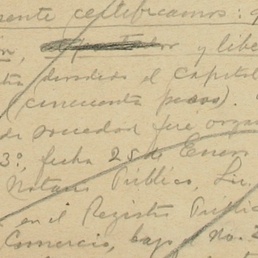 ente certificamos: q
y libe
dividido el Capital
(cincuenta pesos).
de sociedad fué orga
3°, fecha 25 de Enero
Notario Público, Lic.
en el Registro Públic
Comercio, bajo el No. 2